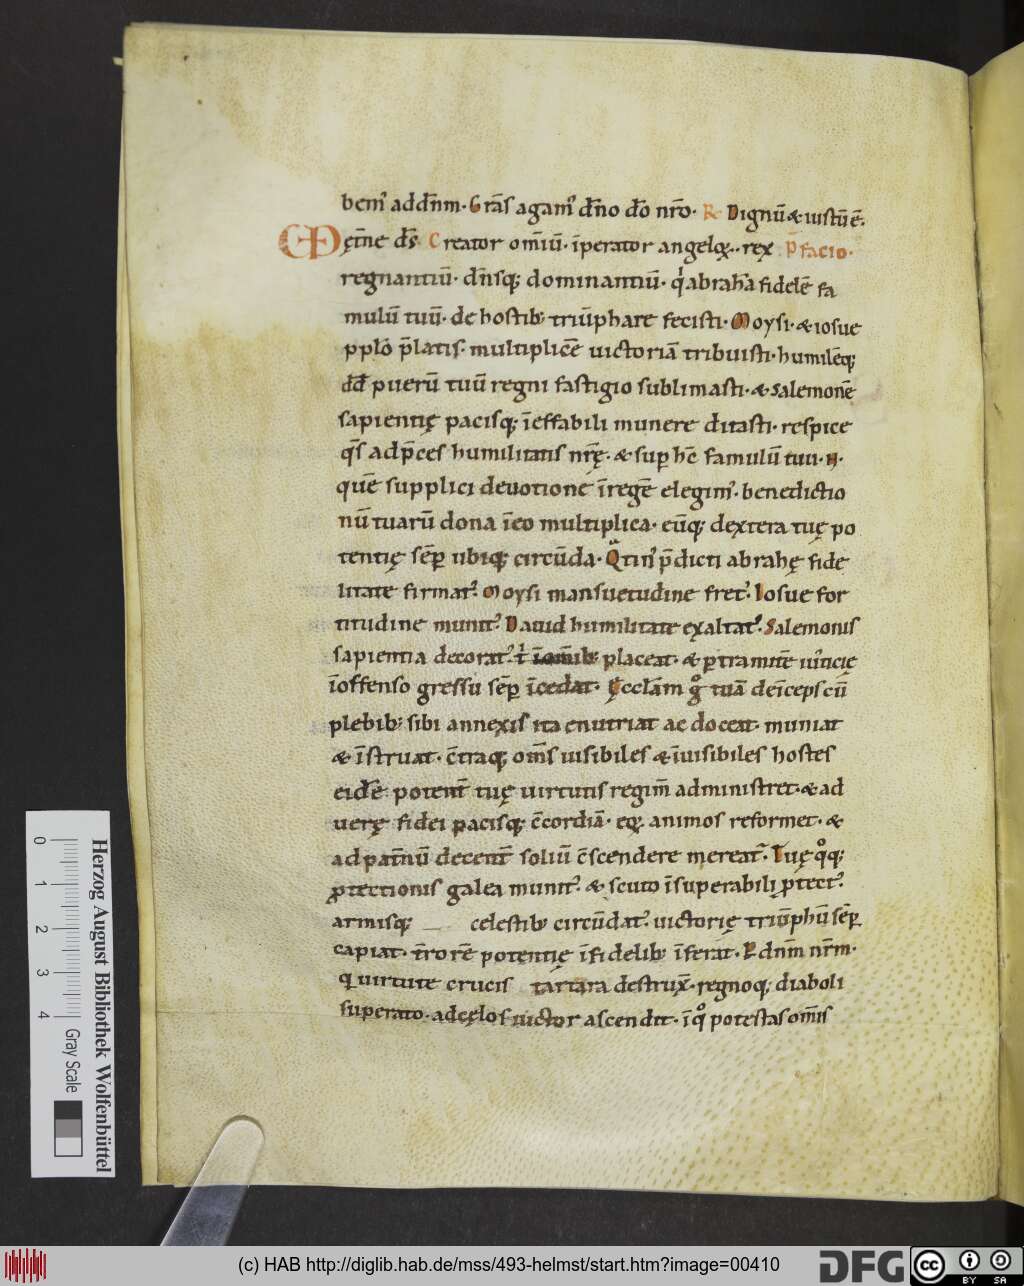 bem᾽ ad dn̄m· Grās agam᾽ dn̄o dō nrō· R Dignū & iustū ē·
ȩt̄ne d̄s Creator om̄iū· īperator angeloꝝ· rex p̄facio·
regnantiū· dn̄sq; dominantiū· qͥ abrahā fidelē fa
mulū tuū· de hostib; triūphare fecisti· Moysi· & iosue
pplō p̄latis· multiplicē uictoriā tribuisti· humilēq;
dd̄ puerū tuū regni fastigio sublimasti· & Salemonē
sapientiȩ pacisq; īeffabili munere ditasti· respice
qs̄ ad p̄ces humilitatis nr̄ȩ· & suꝑ hc̄ famulū tuū· N·
quē supplici deuotione ī regē elegim᾽· benedictio
nū tuarū dona ī eo multiplica· eūq; dextera tuȩ po
tentiȩ sēꝑ ubiq; circūda· Qͣtin᾽ p̄dicti abrahȩ fide
litate firmat᾽· Moysi mansuetudine fret᾽· Iosue for
titudine munit᾽· Dauid humilitate exaltat᾽· Salemonis
sapientia decorat᾽· tͥ ī om̄ib; placeat· & ꝑ tramitē iusticiȩ
īoffenso gressu sēꝑ īcedat· Ȩcclām qͦ tuā deīceps cū
plebib; sibi annexis ita enutriat ac doceat· muniat
& īstruat· c̄traq; om̄s uisibiles & īuisibiles hostes
eidē potent̄ tuȩ uirtutis regim̄ administret· & ad
uerȩ fidei pacisq; c̄cordiā· eoꝝ animos reformet· &
ad pat̄nū decent̄ soliū c̄scendere mereat᾽· Tuȩ qͦq;
ꝓtectionis galea munit᾽· & scuto īsuperabili ꝓtect᾽·
armisq; celestib; circūdat᾽· uictoriȩ triūphū sēꝑ
capiat· t̄rorē potentiȩ īfidelib; īferat· P dn̄m nr̄m·
Q uirtute crucis tartara destrux̄· regnoq; diaboli
superato· ad cȩlos uictor ascendit· ī qͦ potestas om̄is
0
1
2
3
4
Gray Scale
Herzog August Bibliothek Wolfenbüttel
(c) HAB http://diglib.hab.de/mss/493-helmst/start.htm?image=00410
DFG
cc
BY SA